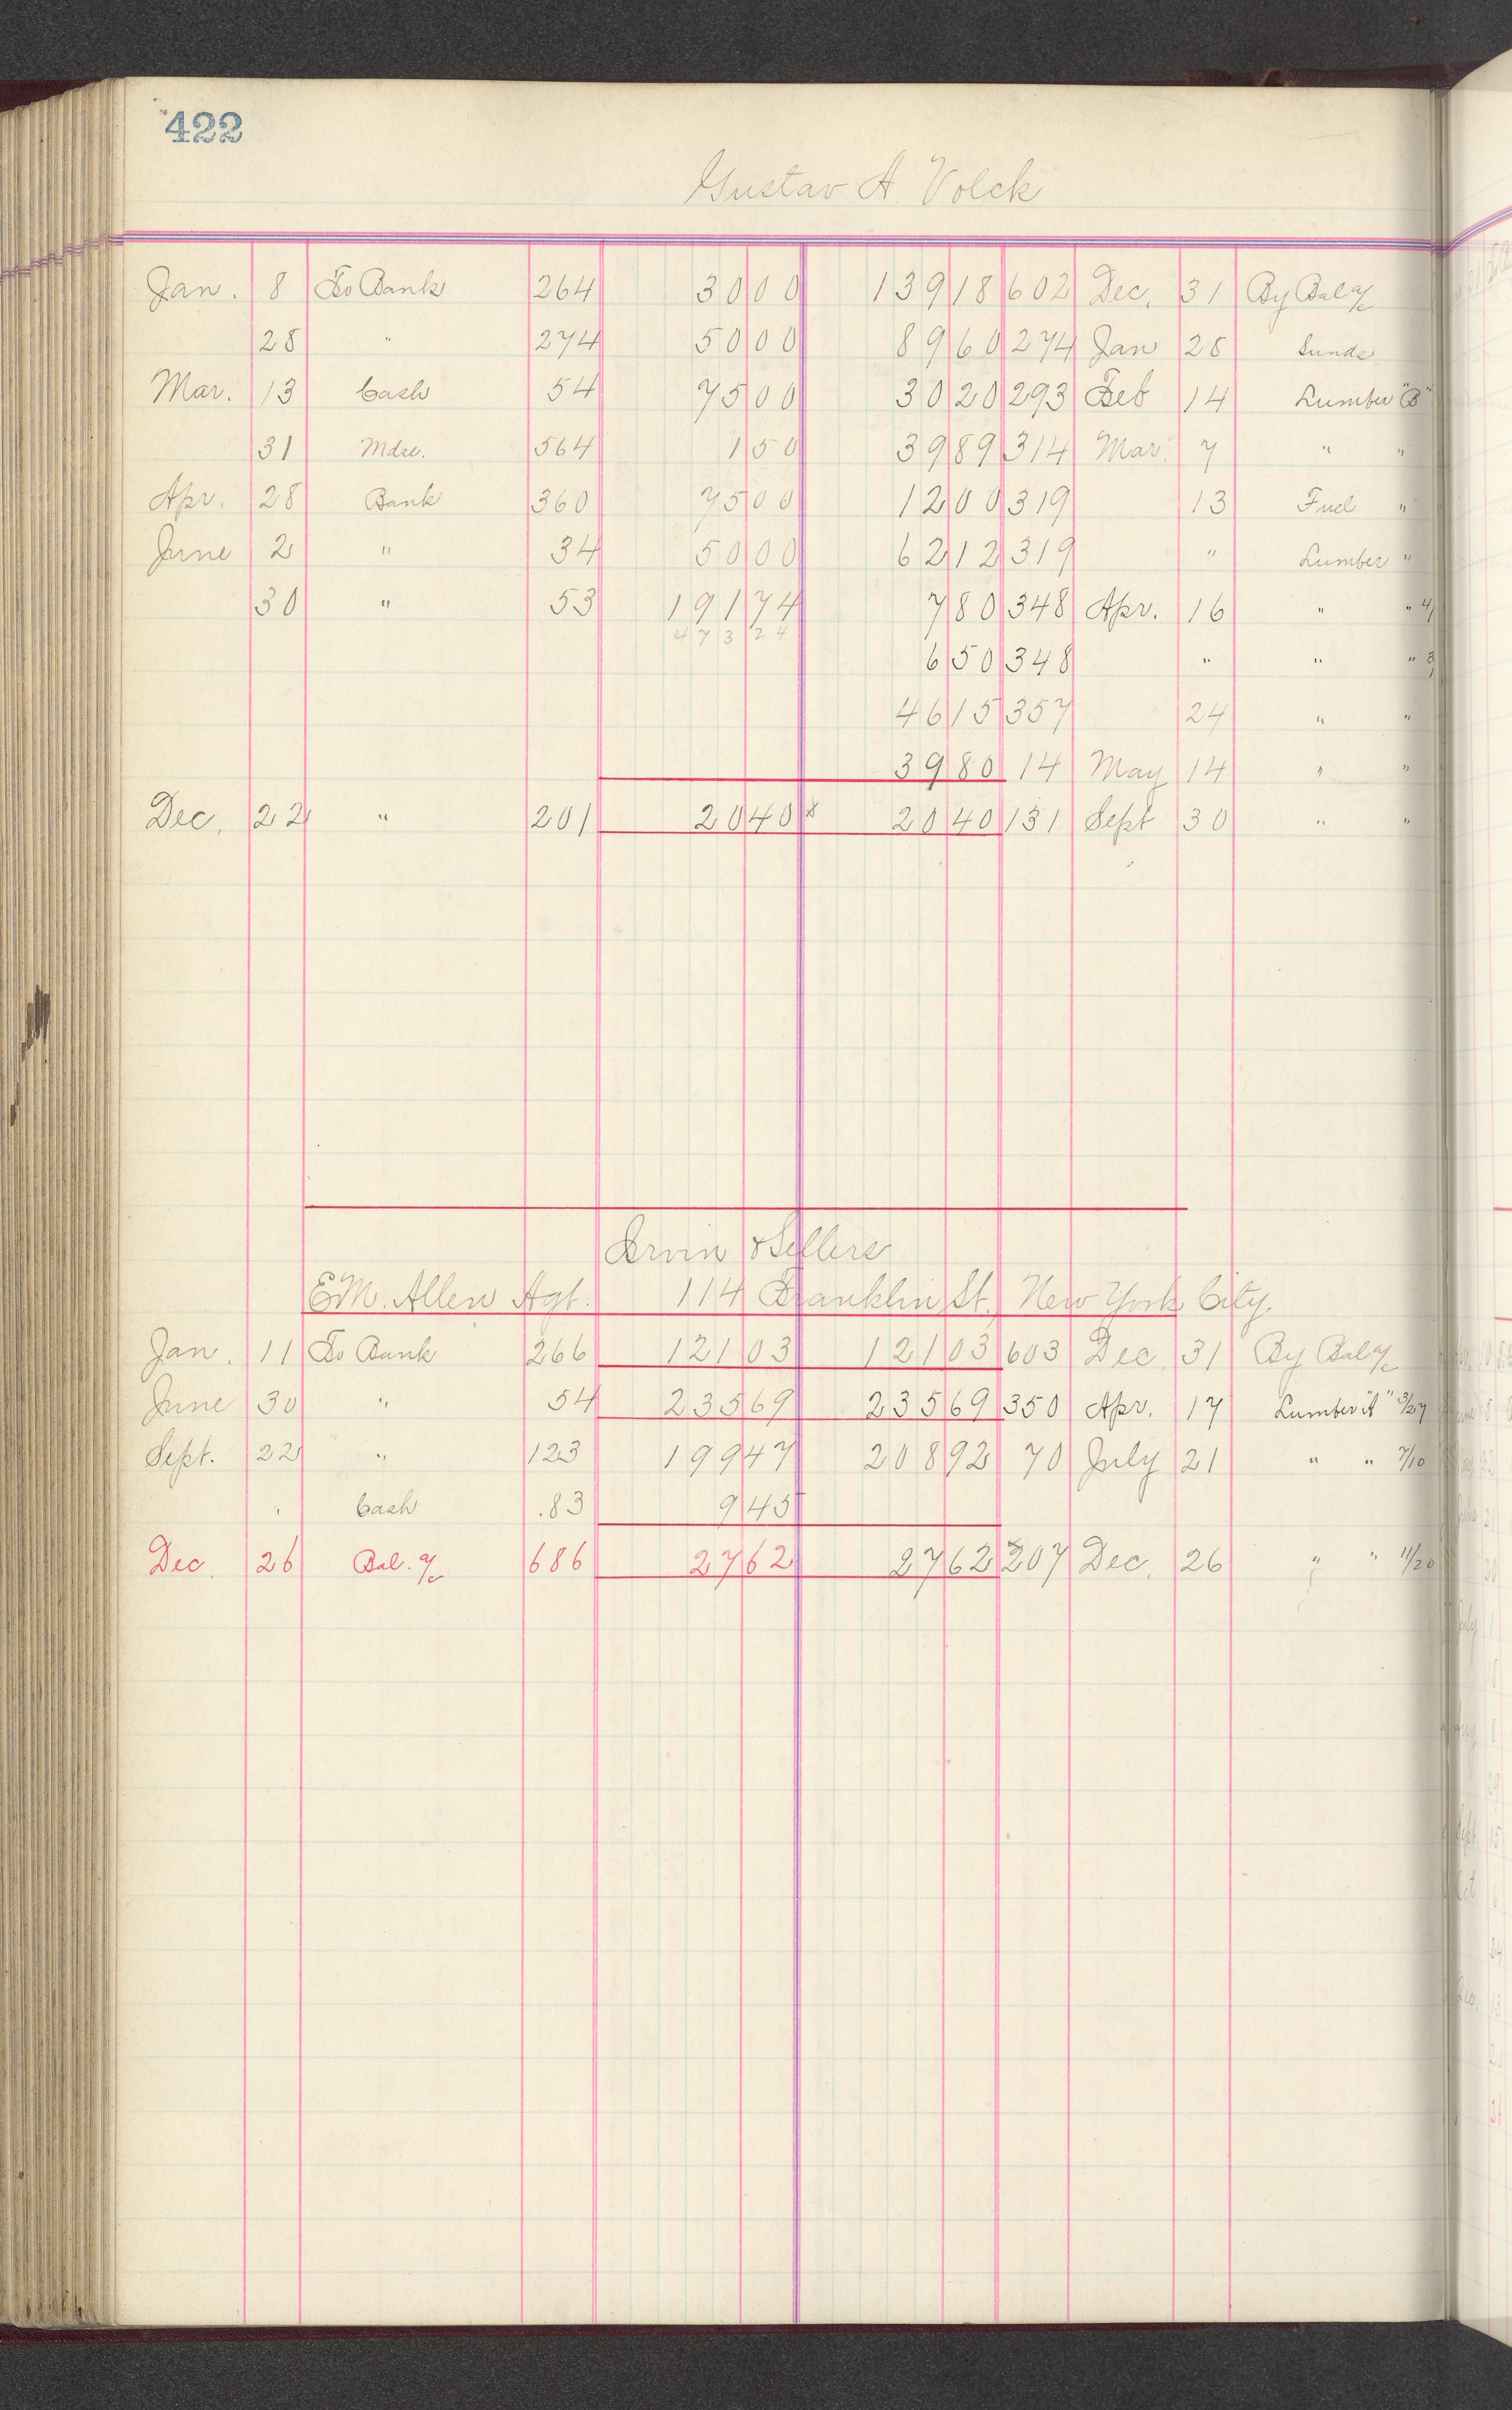 422
Gustav A. Volck
Jan. 8 To Bank 264 30 00 139 18 602 Dec. 31 By Bal a/c
28 " 274 50 00 89 60 274 Jan 28 Sunds
Mar. 13 Cash 54 75 00 30 20 293 Feb 14 Lumber "B"
31 Mdse. 564 1 50 39 89 314 Mar. 7 " "
Apr. 28 Bank 360 75 00 12 00 319 13 Fuel "
June 2 " 34 50 00 62 12 319 " Lumber "
30 " 53 191 74 7 80 348 Apr. 16 " "
473 24 6 50 348 " " "
46 15 357 24 " "
39 80 14 May 14 " "
Dec. 22 " 201 20 40 x 20 40 131 Sept 30 " "
Irvin & Sellers
E.M. Allen Agt. 114 Franklin St. New York City.
Jan. 11 To Bank 266 121 03 121 03 603 Dec. 31 By Bal a/c
June 30 " 54 235 69 235 69 350 Apr. 17 Lumber "A" 3/27
Sept. 22 " 123 199 47 208 92 70 July 21 " " 7/10
" Cash .83 9 45
Dec. 26 Bal. a/c 686 27 62 27 62 207 Dec. 26 " " 11/20